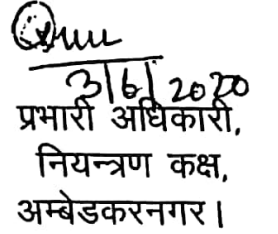 3/6/2020
प्रभारी अधिकारी,
नियन्त्रण कक्ष,
अम्बेडकरनगर।